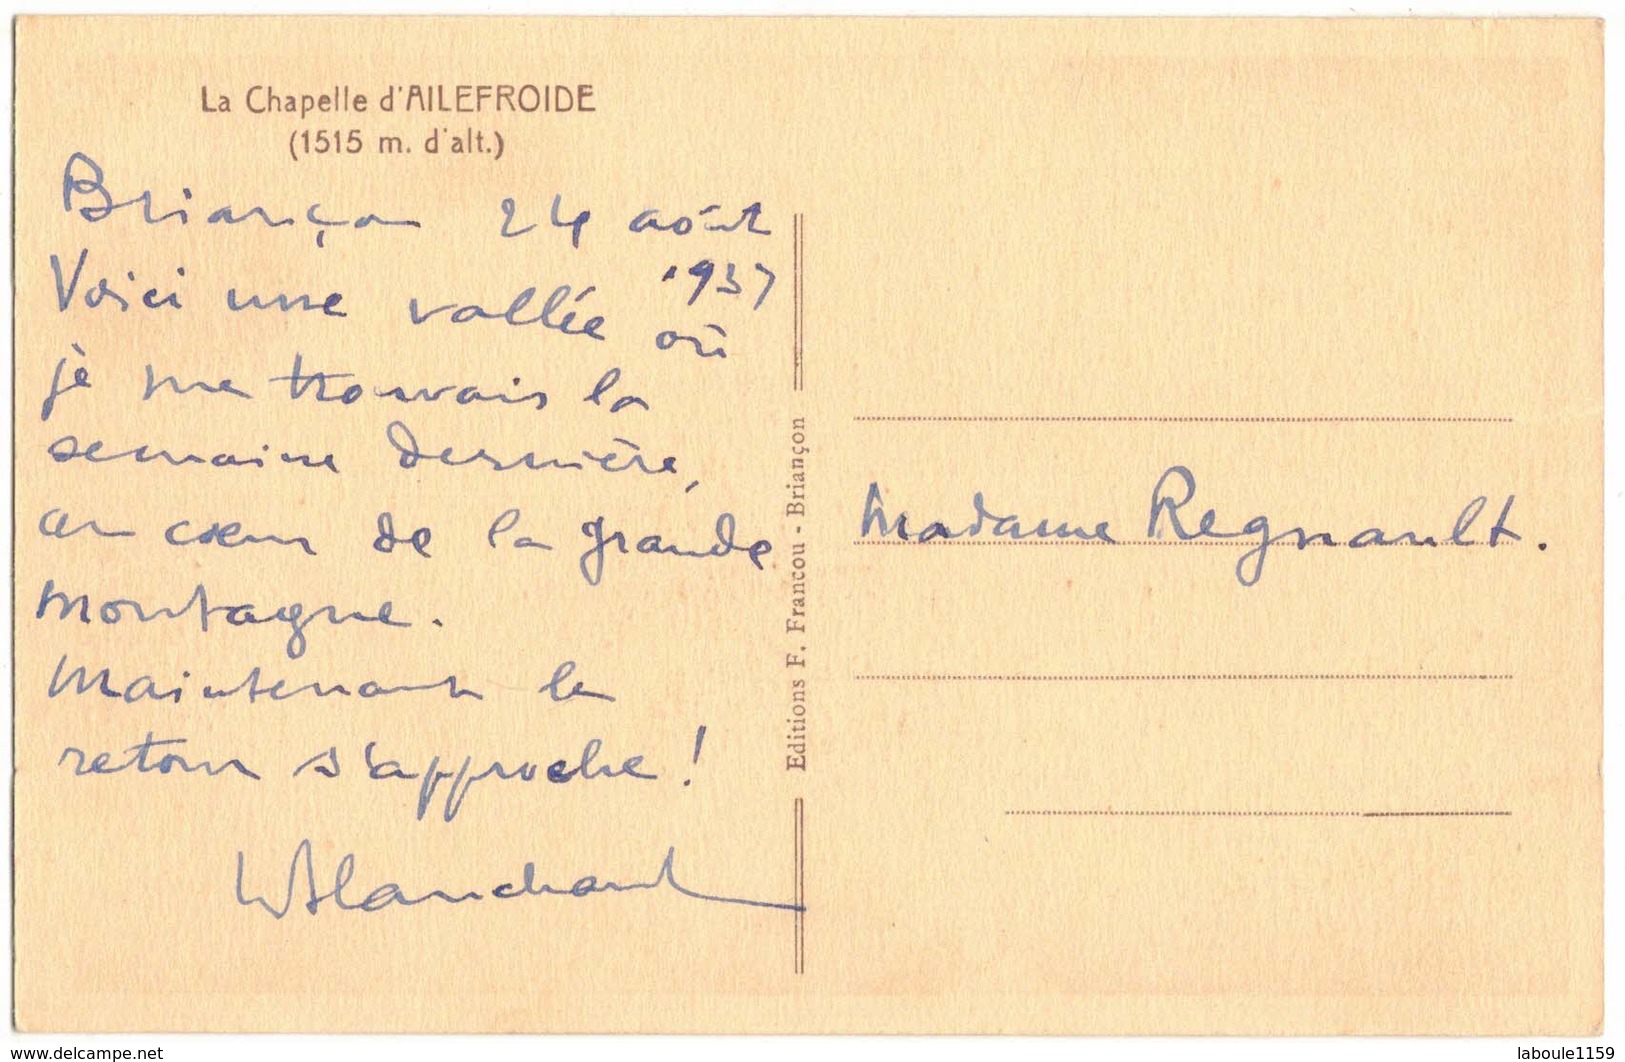 La Chapelle d'AILEFROIDE
(1515 m. d'alt.)
Briançon 24 août
1937
Voici une vallée où
je me trouvais la
semaine dernière,
au cœur de la grande
montagne.
Maintenant le
retour s'approche !
Editions F. Francou - Briançon
Madame Regnault.
www.delcampe.net
laboule1159